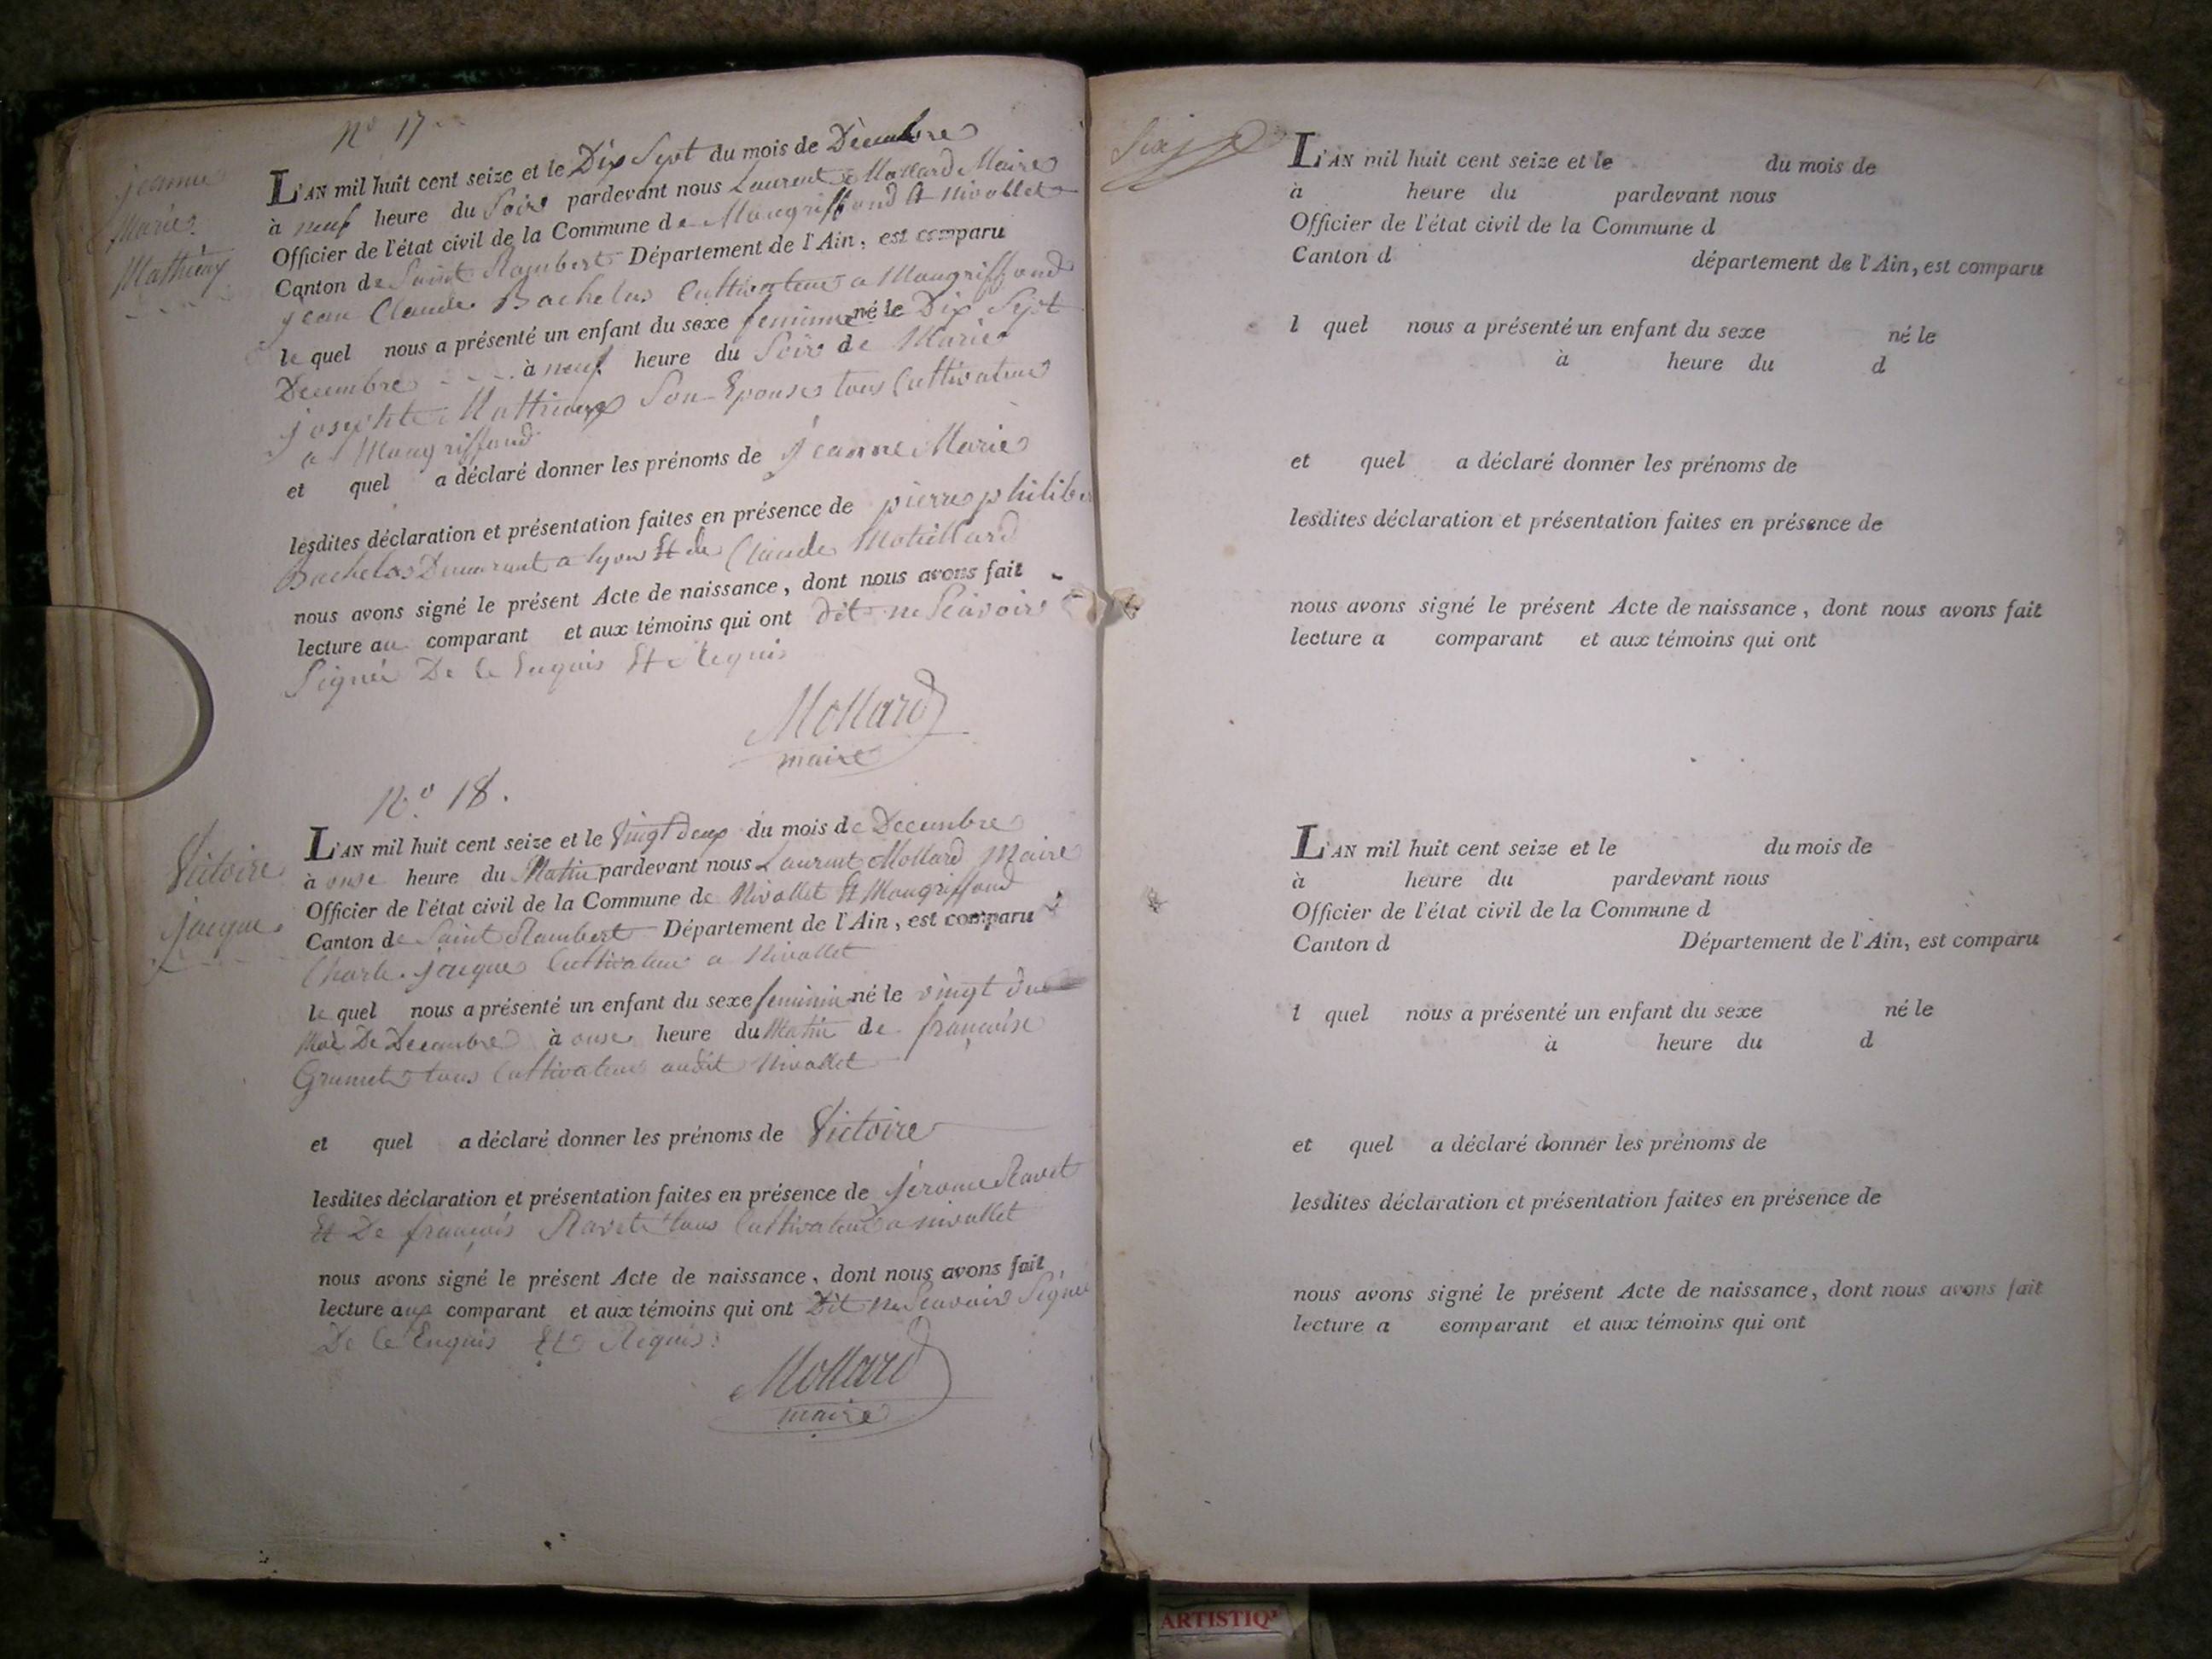 N° 17
jeanne
Marie
Mathieux
L'AN mil huit cent seize et le Dix Sept du mois de Décembre
à neuf heure du Soire pardevant nous Laurent Mollard Maire
Officier de l'état civil de la Commune de Mongriffond Et Nivollet
Canton de Saint Rambert Département de l'Ain, est comparu
jean Claude Bachelas Cultivateur a Mongriffond
le quel nous a présenté un enfant du sexe feminin né le Dix Sept
Decembre à neuf heure du Soire de Marie
josephte Mathieux Son Epouse tous Cultivateur
a Mongriffond
et quel a déclaré donner les prénoms de jeanne Marie
lesdites déclaration et présentation faites en présence de pierre philiber
Bachelas Demeurant a lyon Et de Claude
nous avons signé le présent Acte de naissance, dont nous avons fait
lecture au comparant et aux témoins qui ont dit ne Scavoire
Signée De Ce Enquis Et Requis
Mollard
maire
N° 18.
Victoire
jacque
L'AN mil huit cent seize et le Vingt deux du mois de Decembre
à onse heure du Matin pardevant nous Laurent Mollard Maire
Officier de l'état civil de la Commune de Nivollet Et Mongriffond
Canton de Saint Rambert Département de l'Ain, est comparu
Charle jacque Cultivateur a Nivollet
le quel nous a présenté un enfant du sexe feminin né le vingt
De Decembre à onse heure du Matin de françoise
Grumet tous Cultivateur audit Nivollet
et quel a déclaré donner les prénoms de Victoire
lesdites déclaration et présentation faites en présence de jerome Ravet
Et De françois Ravet tous Cultivateur a nivollet
nous avons signé le présent Acte de naissance, dont nous avons fait
lecture aux comparant et aux témoins qui ont Dit ne Scavoire Signé
De Ce Enquis Et Requis:
Mollard
maire
L'AN mil huit cent seize et le du mois de
à heure du pardevant nous
Officier de l'état civil de la Commune d
Canton d département de l'Ain, est comparu
l quel nous a présenté un enfant du sexe né le
à heure du d
et quel a déclaré donner les prénoms de
lesdites déclaration et présentation faites en présence de
nous avons signé le présent Acte de naissance, dont nous avons fait
lecture a comparant et aux témoins qui ont
L'AN mil huit cent seize et le du mois de
à heure du pardevant nous
Officier de l'état civil de la Commune d
Canton d Département de l'Ain, est comparu
l quel nous a présenté un enfant du sexe né le
à heure du d
et quel a déclaré donner les prénoms de
lesdites déclaration et présentation faites en présence de
nous avons signé le présent Acte de naissance, dont nous avons fait
lecture a comparant et aux témoins qui ont
ARTISTIQ